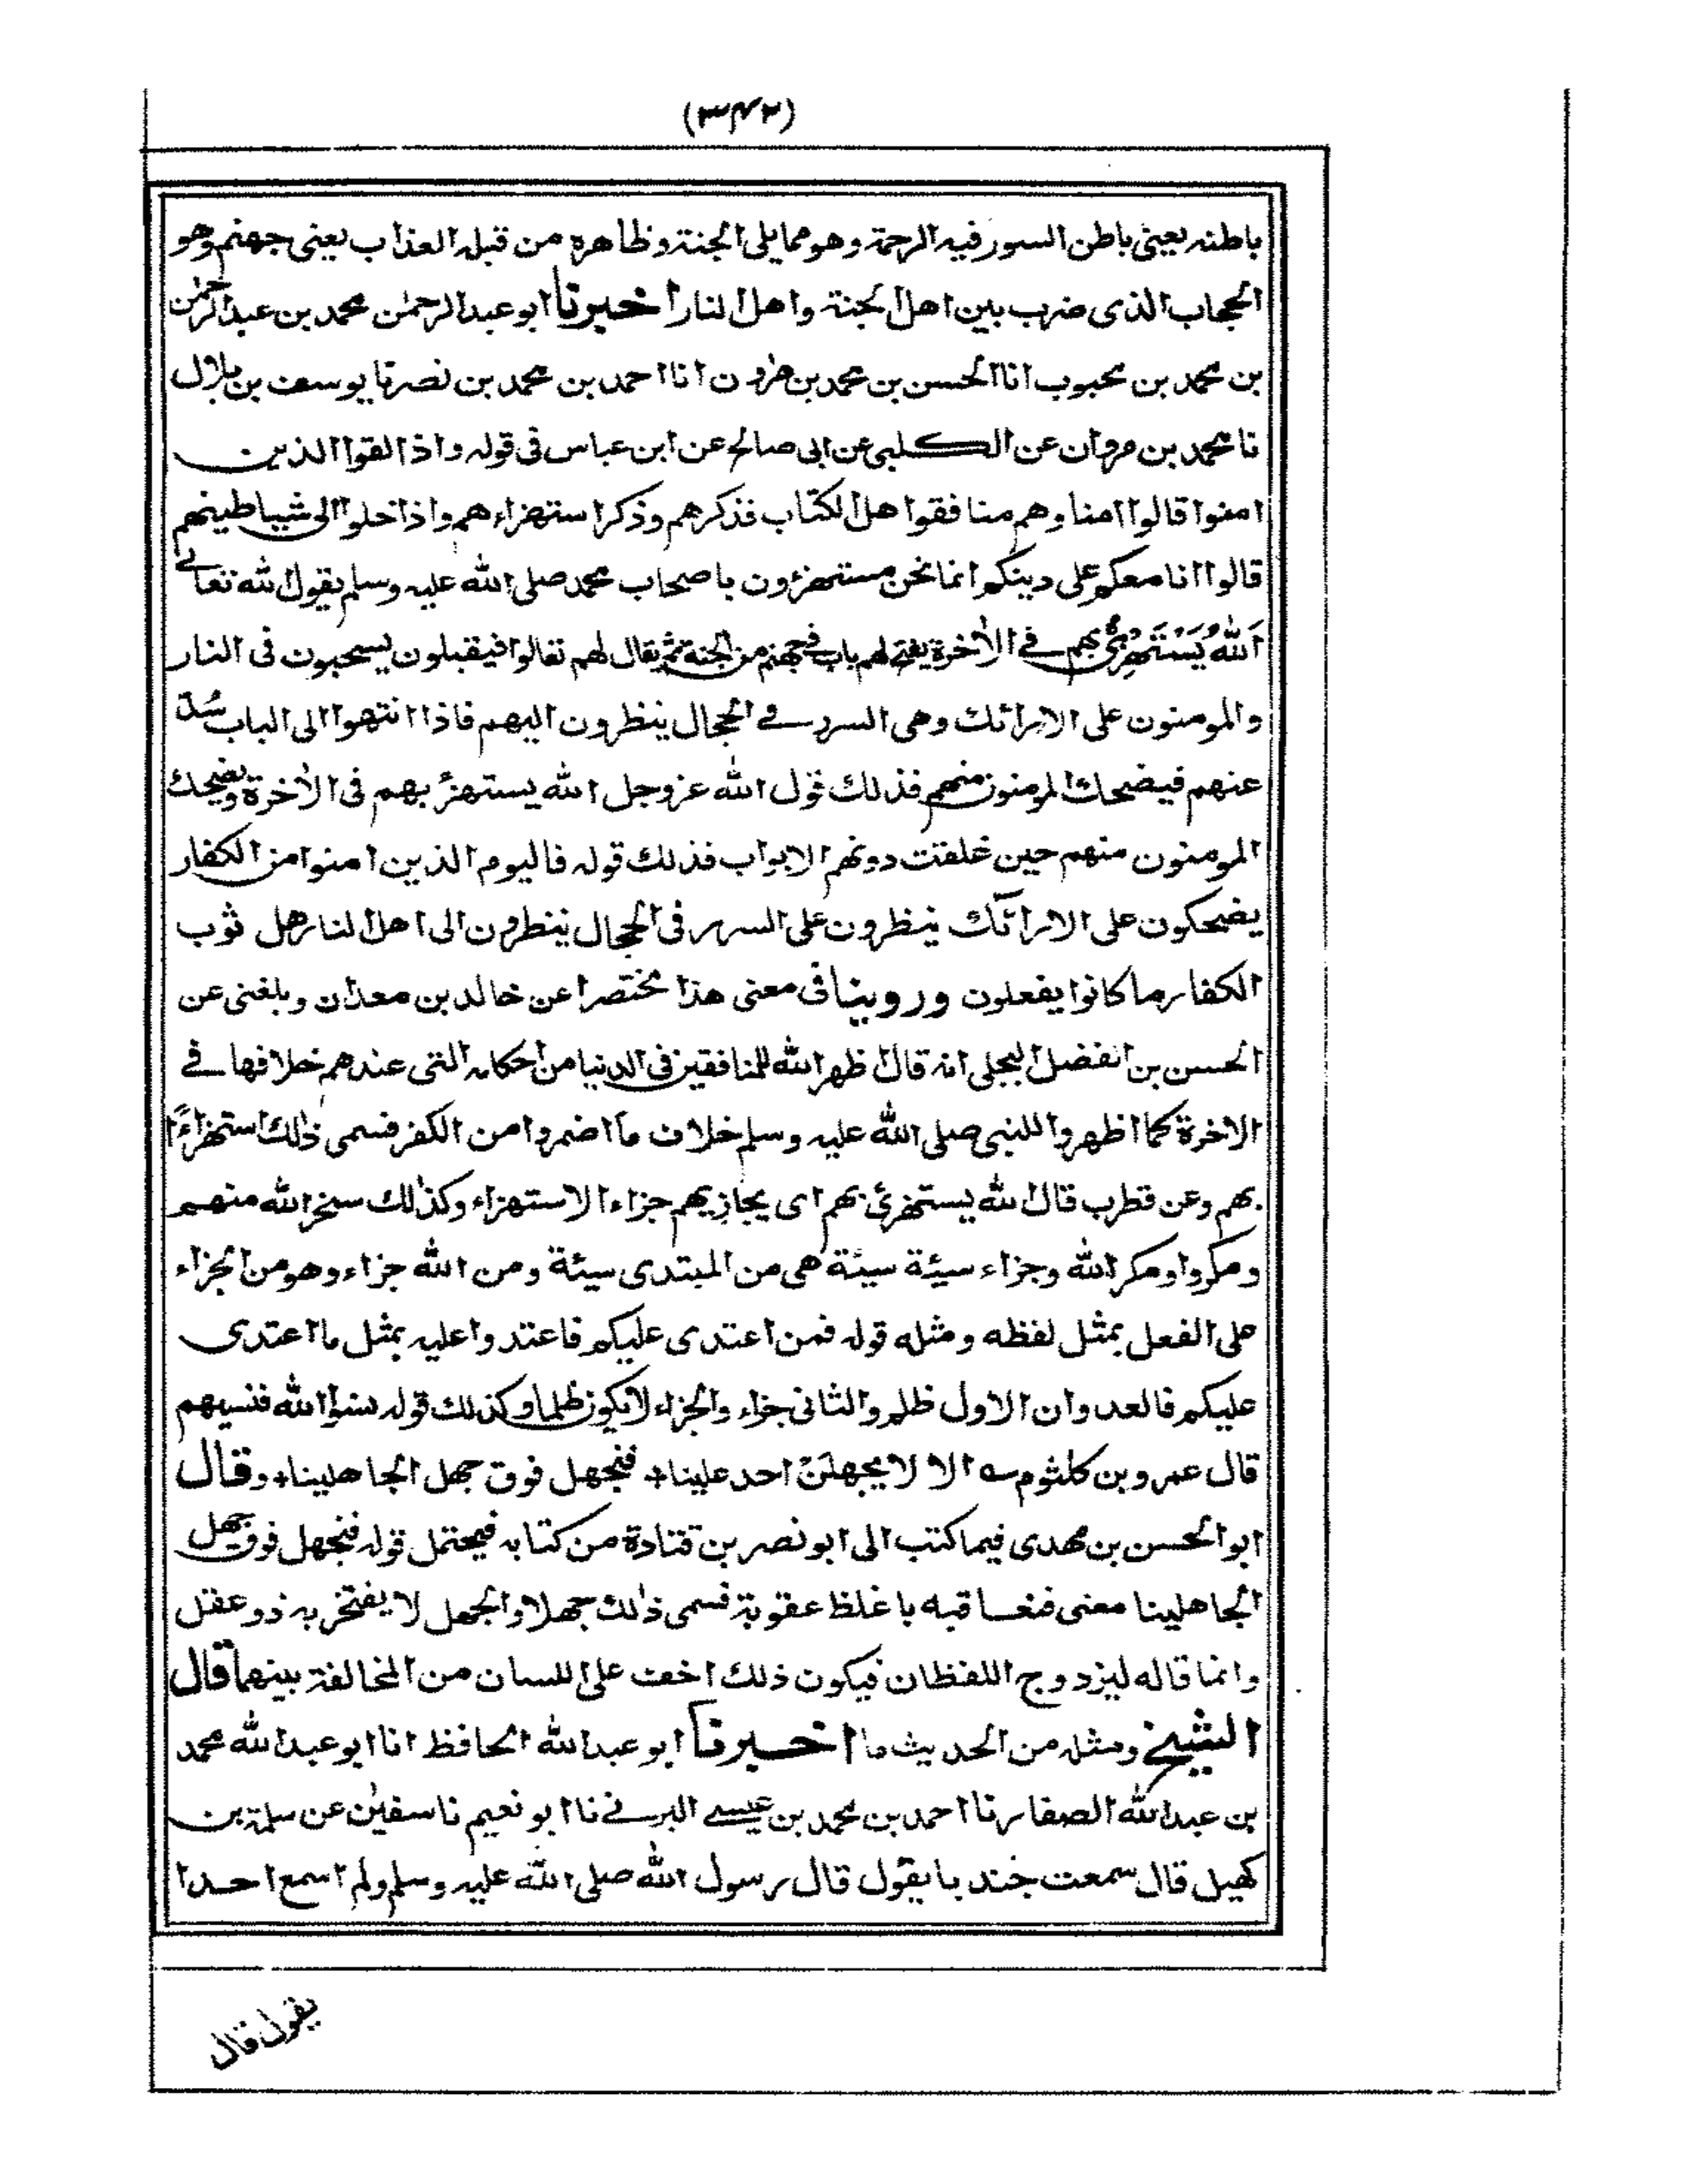 (٣٤٢)
باطنه يعنى باطن السور فيه الرحمة وهو مما يلى الجنة وظاهره من قبله العذاب يعنى جهنم وهو
الحجاب الذى ضرب بين اهل الجنة واهل النار اخبرنا ابو عبد الرحمٰن محمد بن عبد الرحمٰن
بن محمد بن محبوب انا الحسن بن محمد بن هٰرون انا احمد بن محمد بن نصر نا يوسف بن بلال
نا محمد بن مروان عن الكلبى عن ابى صالح عن ابن عباس فى قوله واذا لقوا الذين
امنوا قالوا امنا وهم منافقوا هل الكتاب فذكرهم وذكر استهزاءهم واذا خلوا الى شياطينهم
قالوا انا معكم على دينكم انما نحن مستهزؤن باصحاب محمد صلى الله عليه وسلم يقول الله تعالے
اَللهُ يَسْتَهْزِئُ بِهِم فے الاٰخرة يفتح لهم باب فے جهنم من الجنة ثم يقال لهم تعالوا فيقبلون يسحبون فى النار
والمومنون على الارائك وهى السرر فے الحجال ينظرون اليهم فاذا انتهوا الى الباب سُدّ
عنهم فيضحك المومنون منهم فذلك قول الله عزوجل الله يستهزئ بهم فى الاٰخرة ويضحك
المومنون منهم حين غلقت دونهم الابواب فذلك قوله فاليوم الذين امنوا من الكفار
يضحكون على الارائك ينظرون على السرر فى الحجال ينظرون الى اهل النار هل ثوب
الكفار ما كانوا يفعلون وروينا فى معنى هذا مختصرا عن خالد بن معدان وبلغنى عن
الحسن بن الفضل البجلى انه قال اظهر الله للمنافقين فى الدنيا من احكامه التى عندهم خلافها فے
الاخرة كما اظهروا للنبى صلى الله عليه وسلم خلاف ما اضمروا من الكفر فسمى ذٰلك استهزاءً ا
بهم وعن قطرب قال الله يستهزئ بهم اى يجازيهم جزاء الاستهزاء وكذٰلك سخر الله منهم
ومكروا ومكر الله وجزاء سيئة سيئة هى من المبتدى سيئة ومن الله جزاء وهو من الجزاء
على الفعل بمثل لفظه ومثله قوله فمن اعتدى عليكم فاعتدوا عليه بمثل ما اعتدى
عليكم فالعدوان الاول ظلم والثانى جزاء والجزاء لا يكون ظلما وكذلك قوله نسوا الله فنسيهم
قال عمرو بن كلثوم ؎ الا لا يجهلن احد علينا + فنجهل فوق جهل الجاهلينا + وقال
ابو الحسن بن مهدى فيما كتب الى ابو نصر بن قتادة من كتابه فيحتمل قوله فنجهل فوق جهل
الجاهلينا معنى فنعاقبه باغلظ عقوبة فسمى ذٰلك جهلا والجهل لا يفتخر به ذو عقل
وانما قاله ليزدوج اللفظان فيكون ذلك اخف على اللسان من المخالفة بينهما قال
الشيخ ومثله من الحديث ما اخبرنا ابو عبد الله الحافظ انا ابو عبد الله محمد
بن عبد الله الصفار نا احمد بن محمد بن عيسے البرتے نا ابو نعيم نا سفيٰن عن سلمة بن
كهيل قال سمعت جندبا يقول قال رسول الله صلى الله عليه وسلم ولم اسمع احدا
يقول قال